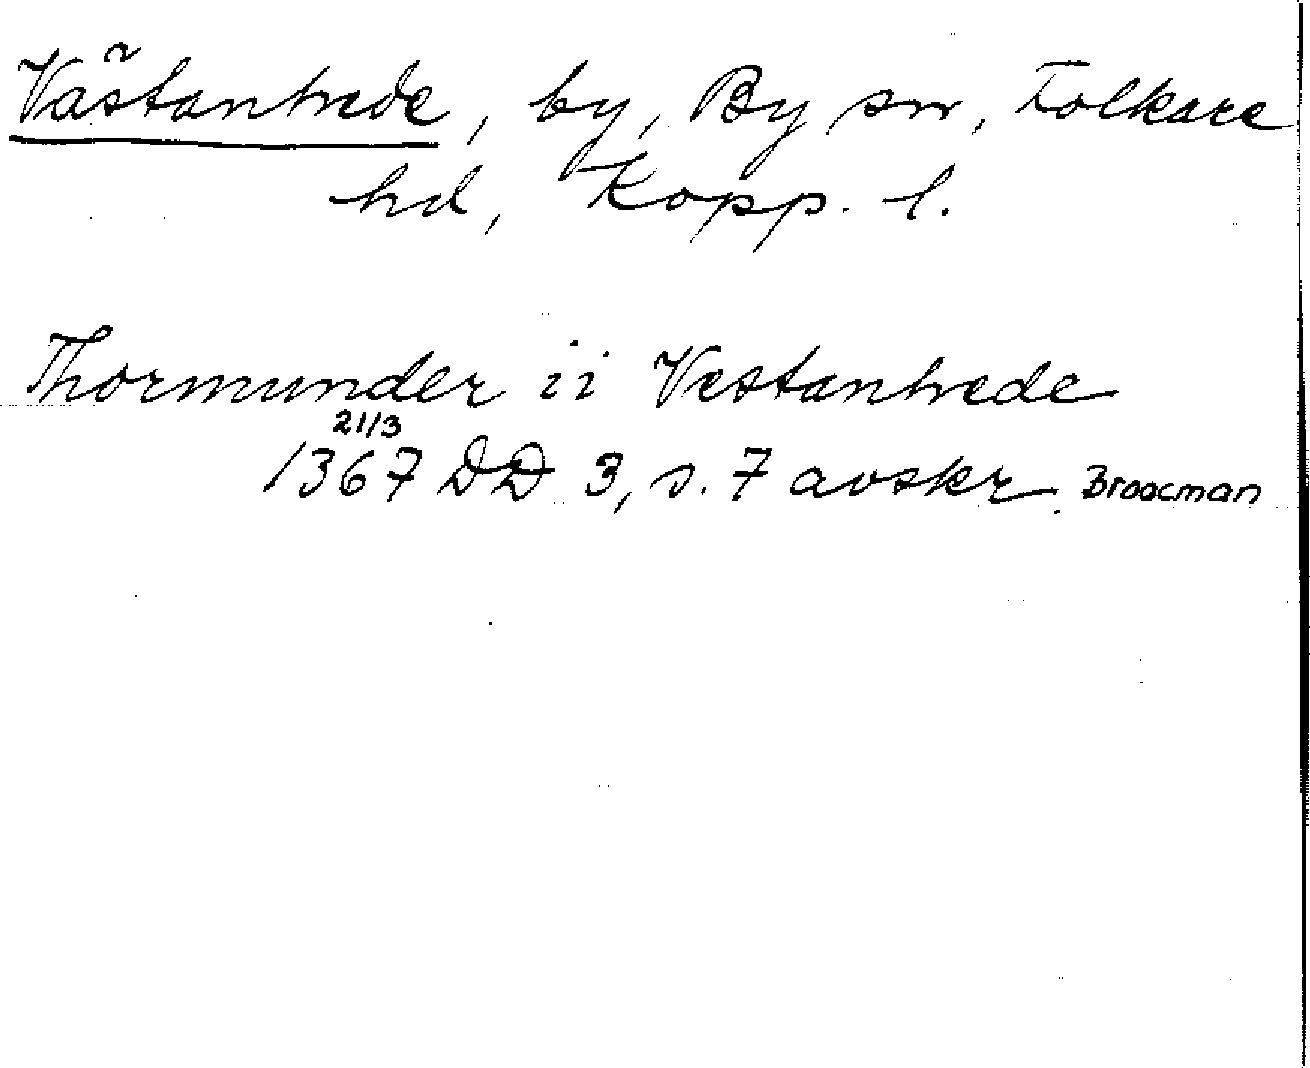 Västanhede, by, By sn, Folkare
hd, Kopp. l.
Thormunder ii Vestanhede
21/3
1367 DD 3, s. 7 avskr. Broocman